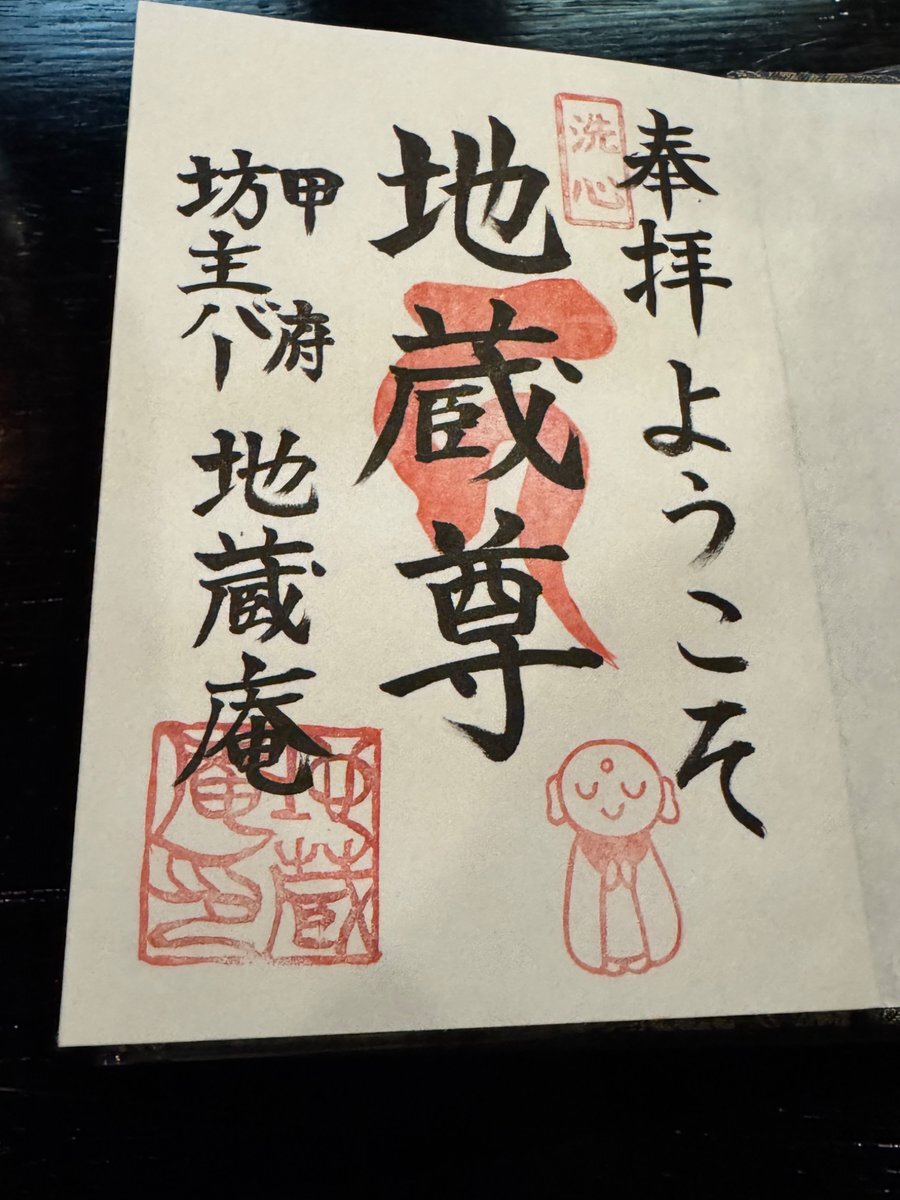 奉拝ようこそ
洗心
地蔵尊
甲府
坊主バー
地蔵庵
地蔵庵印